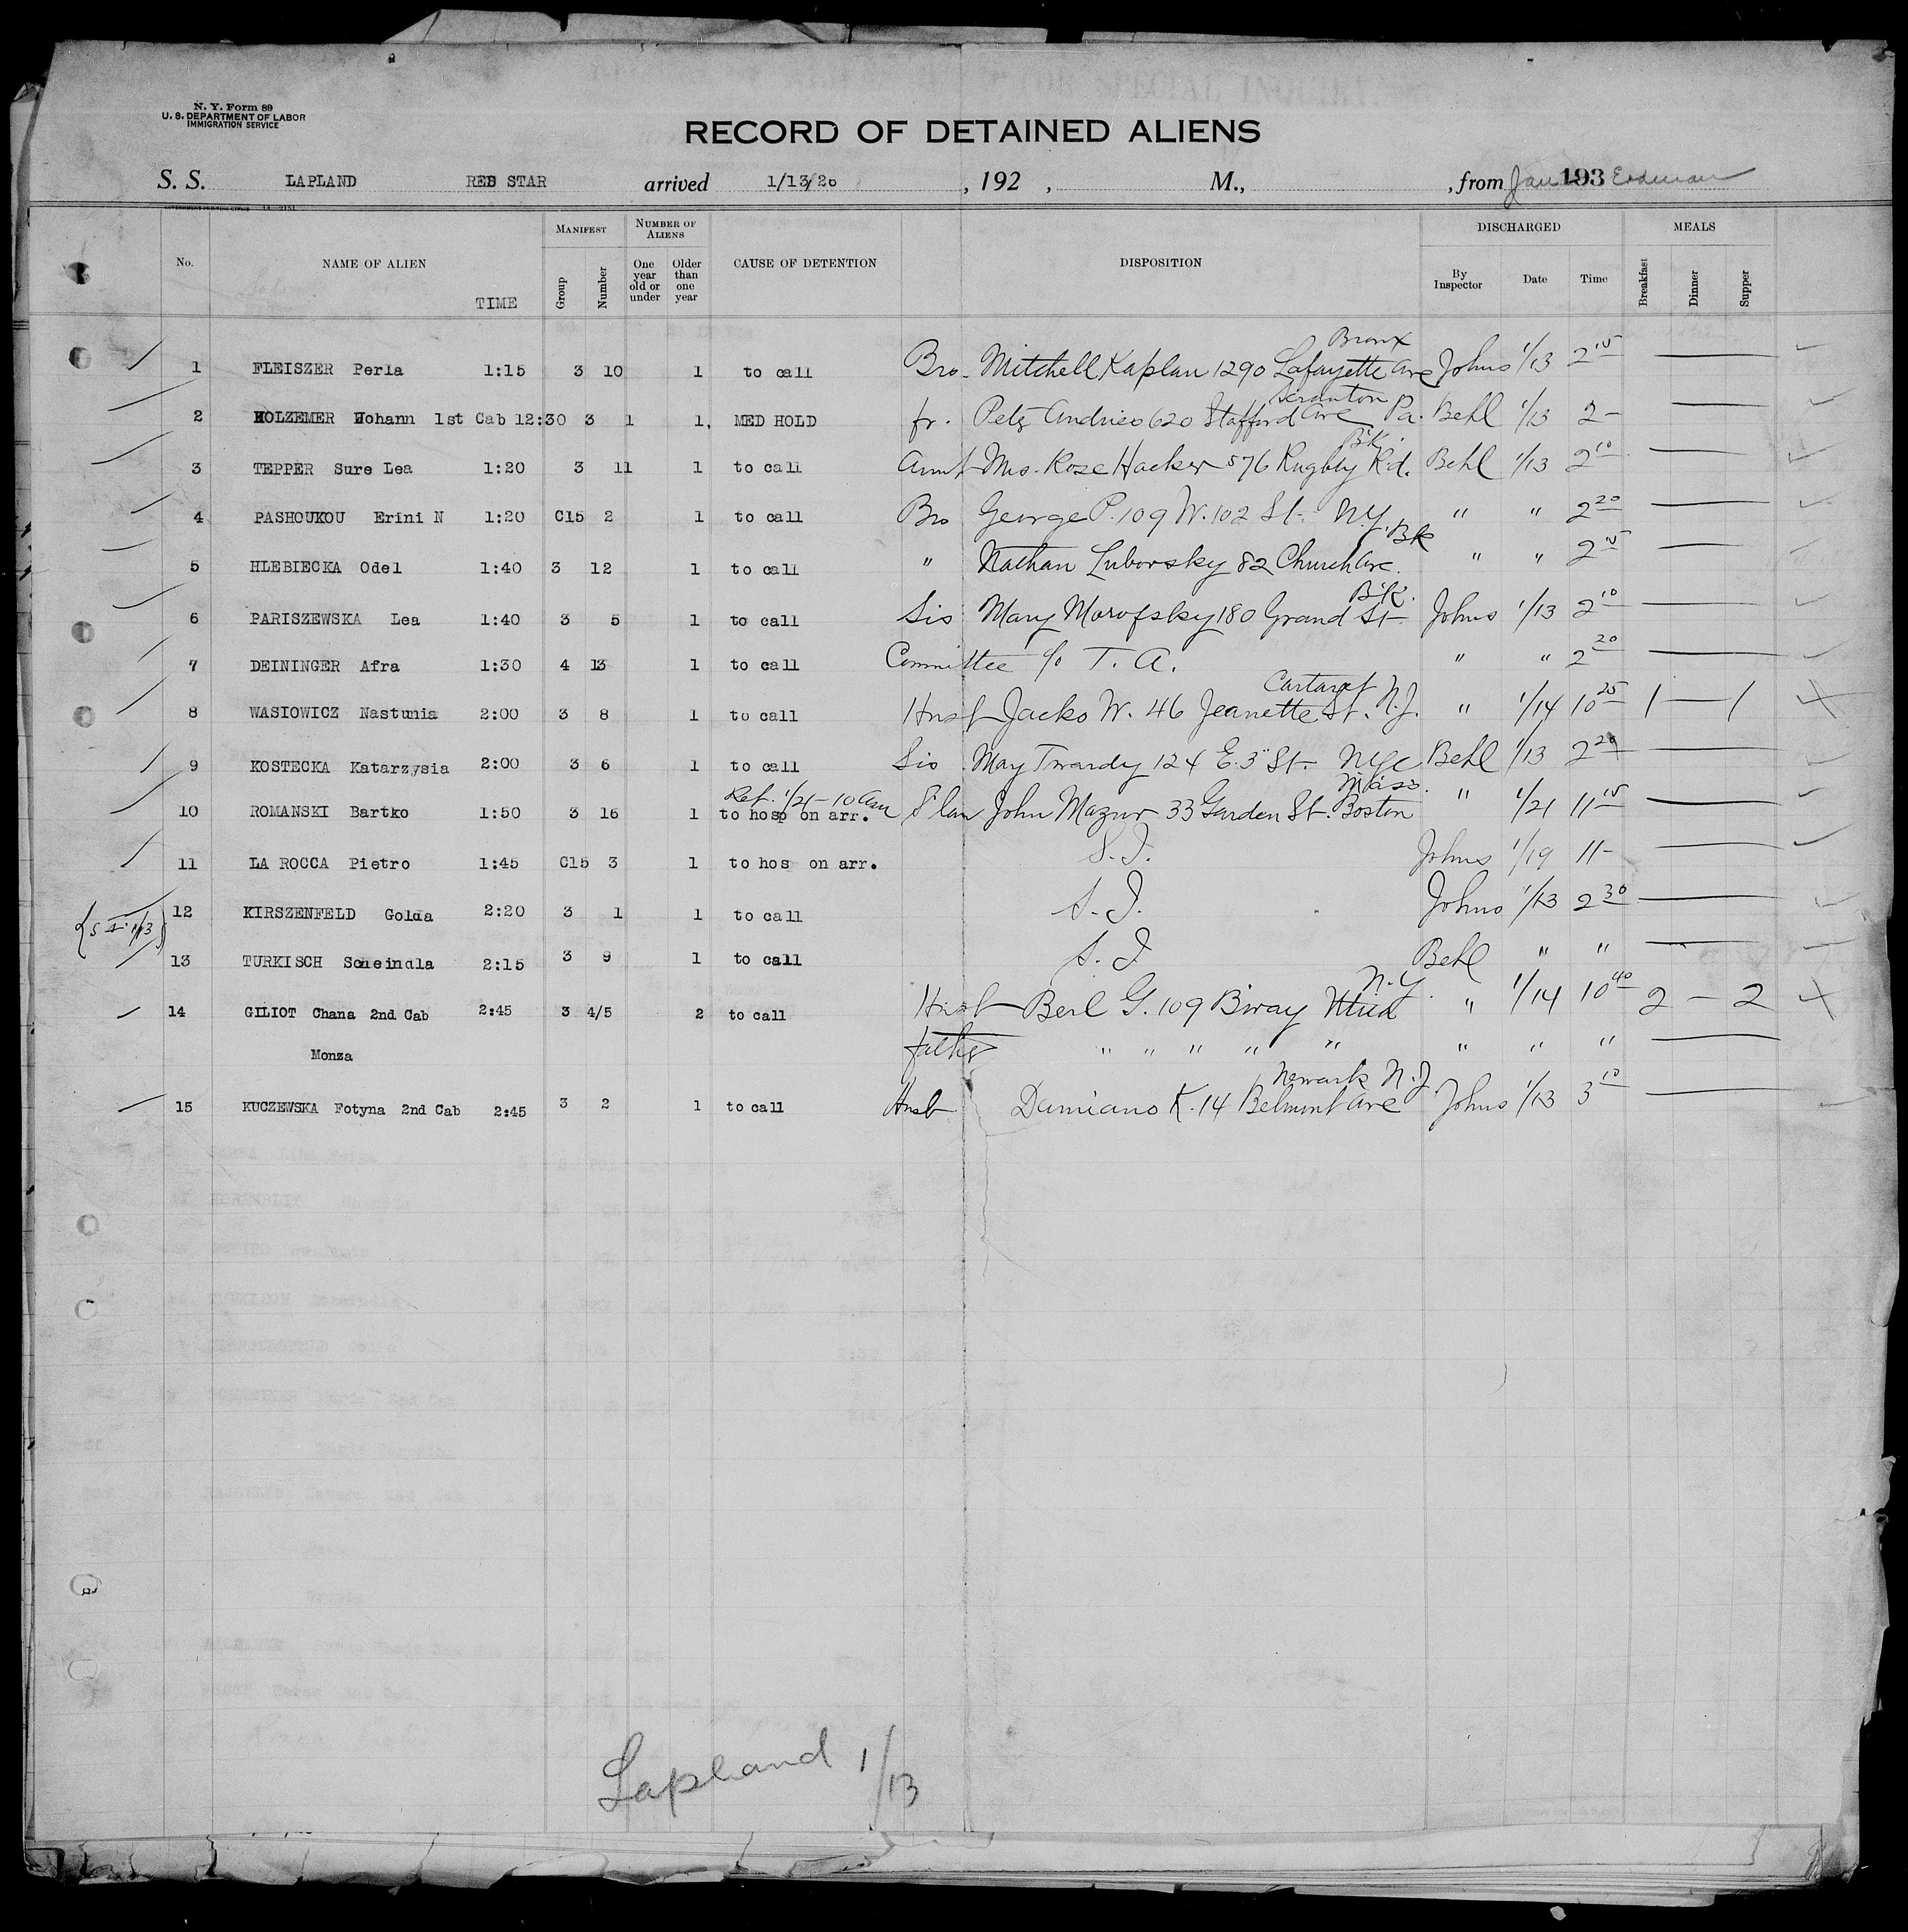 N. Y. Form 89
U. S. DEPARTMENT OF LABOR
IMMIGRATION SERVICE
RECORD OF DETAINED ALIENS
S. S. LAPLAND RED STAR arrived 1/13/20, 192 , M., , from Jan 193
No. NAME OF ALIEN TIME MANIFEST Group Number NUMBER OF ALIENS One year old or under Older than one year CAUSE OF DETENTION DISPOSITION DISCHARGED By Inspector Date Time MEALS Breakfast Dinner Supper
Bronx
1 FLEISZER Perla 1:15 3 10 1 to call Bro. Mitchell Kaplan 1290 Lafayette Ave Johns 1/13 2 15
Scranton
2 HOLZEMER Johann 1st Cab 12:30 3 1 1, MED HOLD fr. Petz Andrieo 620 Stafford Ave Pa. Behl 1/13 2 -
Bk.
3 TEPPER Sure Lea 1:20 3 11 1 to call Aunt Mrs. Rose Hacker 576 Rugby Rd. Behl 1/13 2 10
4 PASHOUKOU Erini N 1:20 C15 2 1 to call Bro George P. 109 W. 102 St. N.Y. " " 2 20
Bk
5 HLEBIECKA Odel 1:40 3 12 1 to call " Nathan Luborsky 82 Church Ave. " " 2 15
Bk.
6 PARISZEWSKA Lea 1:40 3 5 1 to call Sis Mary Morofsky 180 Grand St. Johns 1/13 2 10
7 DEININGER Afra 1:30 4 13 1 to call Committee c/o T. A. " " 2 20
Cartaret
8 WASIOWICZ Nastunia 2:00 3 8 1 to call Husb Jacko W. 46 Jeanette St. N.J. " 1/14 10 25 1 — 1
9 KOSTECKA Katarzysia 2:00 3 6 1 to call Sis May Twardy 124 E. 3" St. NYC Behl 1/13 2 20
Ret. 1/21 - 10 am Mass.
10 ROMANSKI Bartko 1:50 3 16 1 to hosp on arr. John Mazur 33 Garden St. Boston " 1/21 11 15
11 LA ROCCA Pietro 1:45 C15 3 1 to hos on arr. S. I. Johns 1/19 11 -
12 KIRSZENFELD Golda 2:20 3 1 1 to call S. I. Johns 1/13 2 30
13 TURKISCH Scheindla 2:15 3 9 1 to call S. I Behl " "
N.Y.
14 GILIOT Chana 2nd Cab 2:45 3 4/5 2 to call Husb Berl G. 109 Bway " 1/14 10 40 2 — 2
Monza father " " " " " " " "
Newark N.J.
15 KUCZEWSKA Fotyna 2nd Cab 2:45 3 2 1 to call Husb Damiano K. 14 Belmont Ave Johns 1/13 3 10
Lapland 1/13